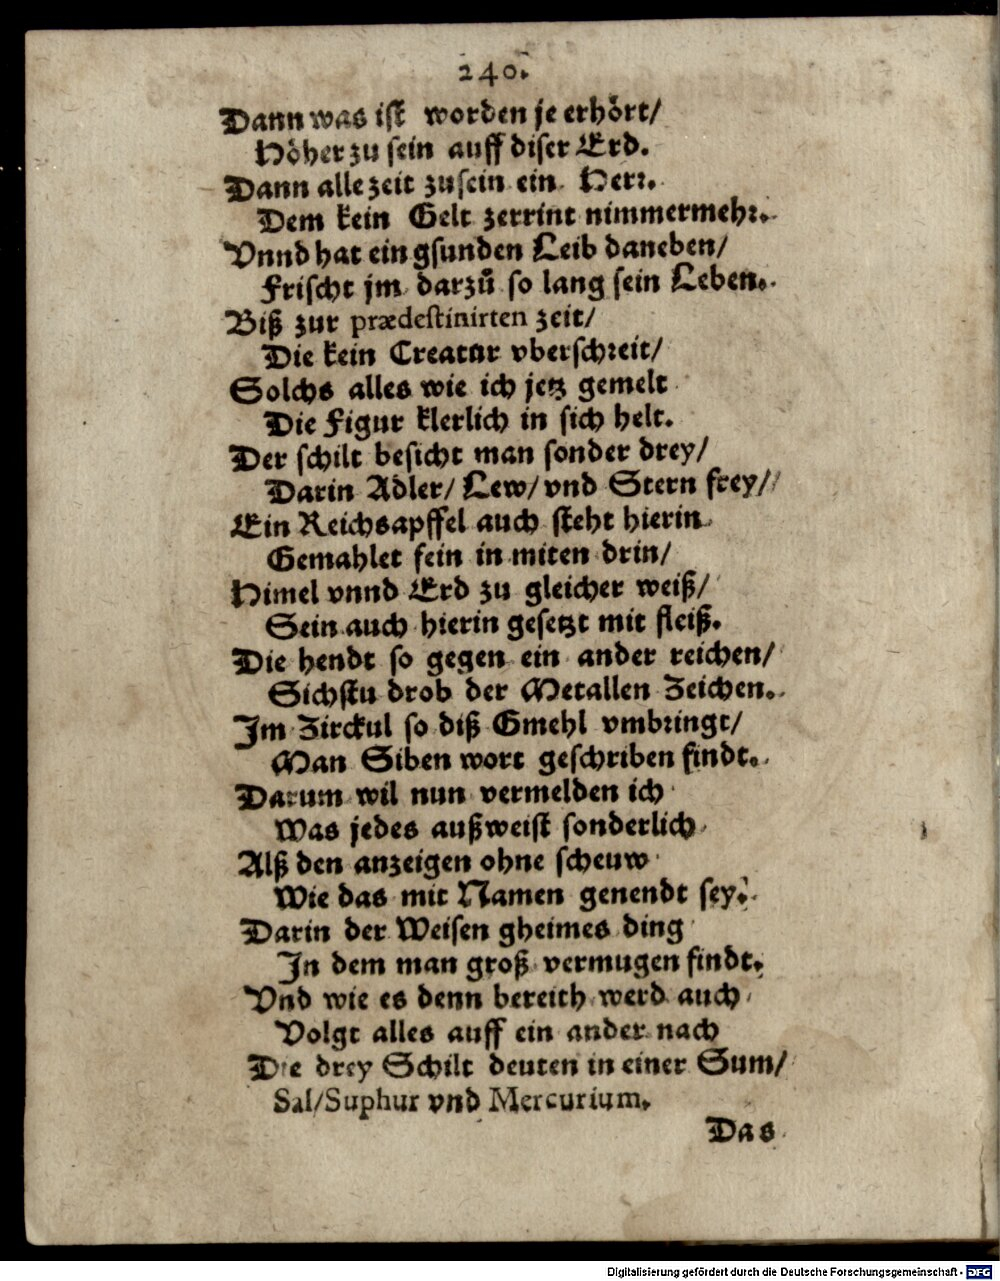 240.
Dann was ist worden je erhört/
Höher zu sein auff diser Erd.
Dann alle zeit zu sein ein Herr.
Dem kein Gelt zerrint nimmermehr.
Vnnd hat ein gsunden Leib daneben/
Frischt jm darzů so lang sein Leben.
Biß zur prædestinirten zeit/
Die kein Creatur vberschreit/
Solchs alles wie ich jetz gemelt
Die Figur klerlich in sich helt.
Der schilt besicht man sonder drey/
Darin Adler/ Lew/ vnd Stern frey/
Ein Reichsapffel auch steht hierin
Gemahlet fein in miten drin/
Himel vnnd Erd zu gleicher weiß/
Sein auch hierin gesetzt mit fleiß.
Die hendt so gegen ein ander reichen/
Sichstu drob der Metallen Zeichen.
Im Zirckul so diß Gmehl vmbringt/
Man Siben wort geschriben findt.
Darum wil nun vermelden ich
Was jedes außweist sonderlich
Alß den anzeigen ohne scheuw
Wie das mit Namen genendt sey.
Darin der Weisen gheimes ding
In dem man groß vermugen findt.
Vnd wie es denn bereith werd auch
Volgt alles auff ein ander nach
Die drey Schilt deuten in einer Sum/
Sal/Suphur vnd Mercurium.
Das
Digitalisierung gefördert durch die Deutsche Forschungsgemeinschaft - DFG